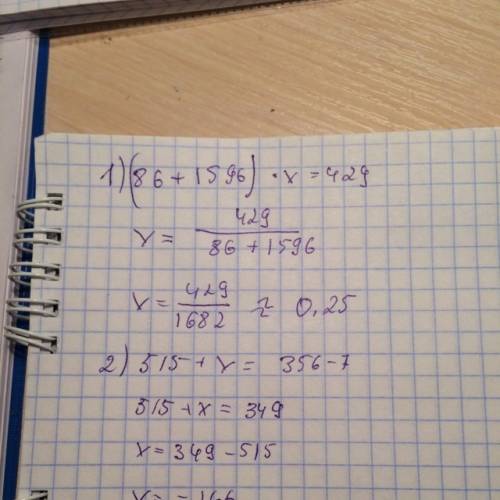 1) (86 + 1596) · x = 429
x = 429 / 86 + 1596
x = 429 / 1682 ≈ 0,25
2) 515 + x = 356 - 7
515 + x = 349
x = 349 - 515
x = - 166